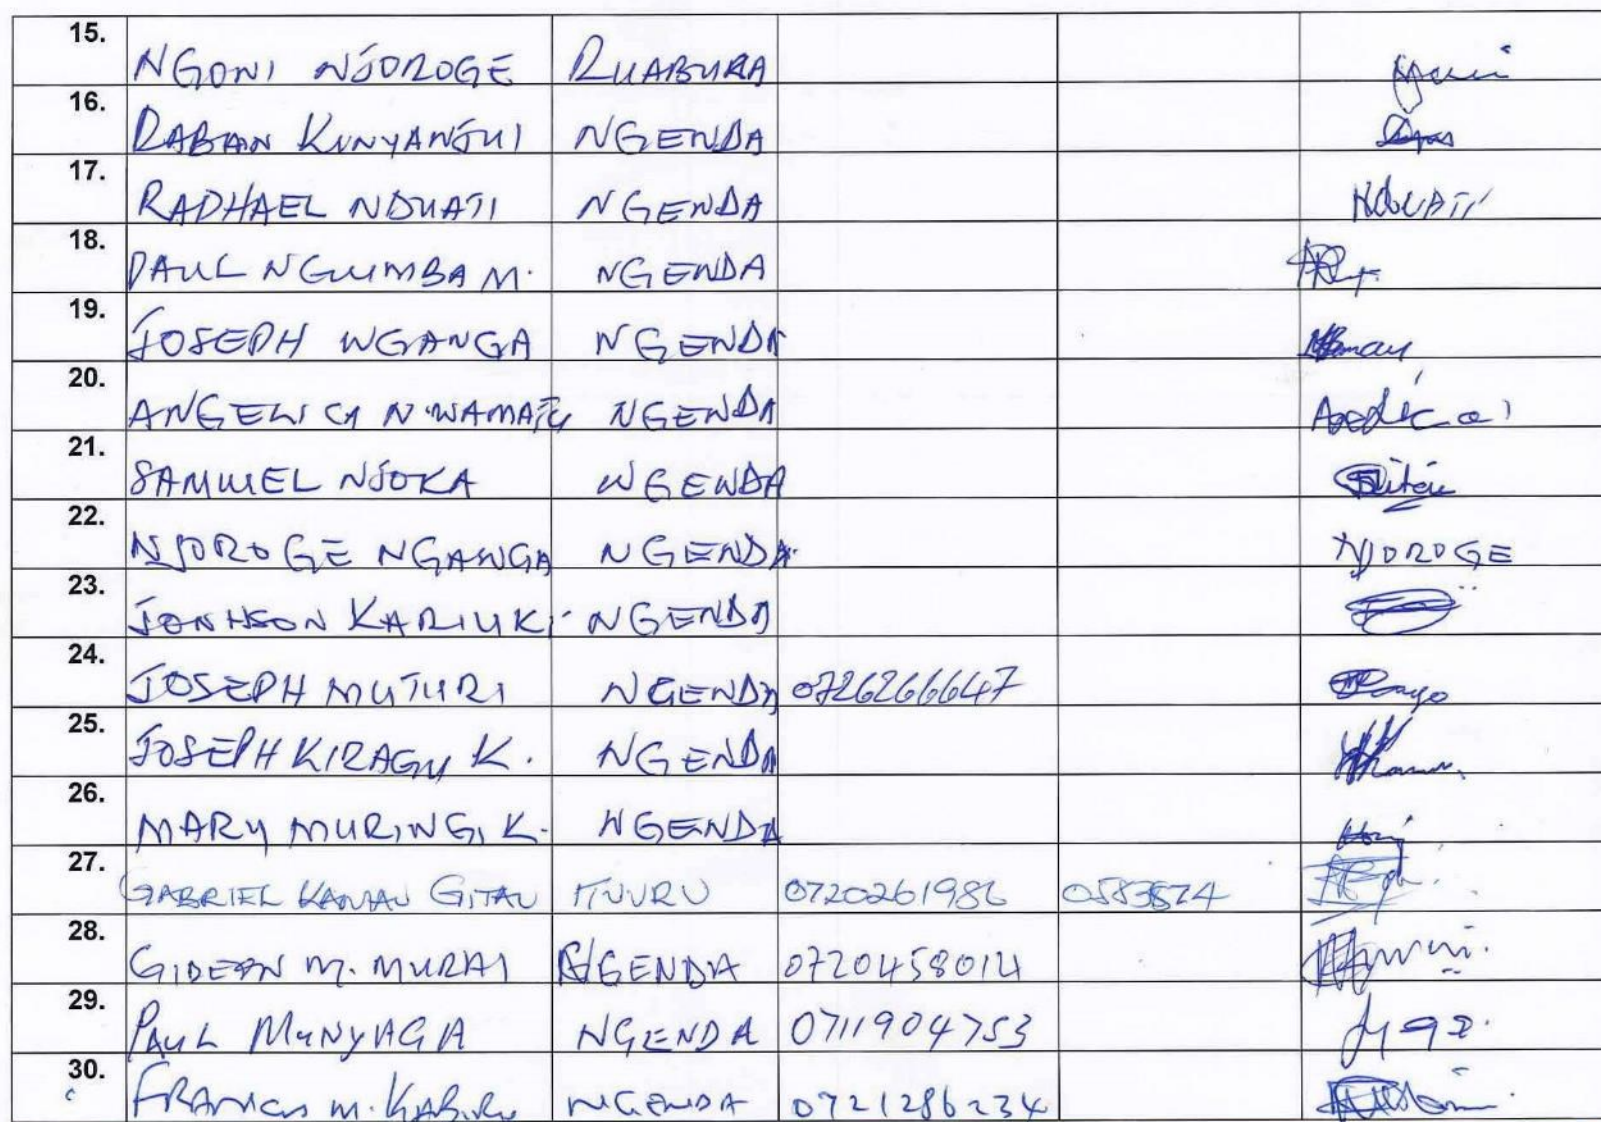 15. NGONI NJOROGE RUABURA
16. RABAN KUNYANJUI NGENDA
17. RAPHAEL NDUATI NGENDA NDUATI
18. PAUL NGUUMBA M. NGENDA
19. JOSEPH NGANGA NGENDA
20. ANGELICA N. WAMAITU NGENDA
21. SAMUEL NJOKA NGENDA
22. NJOROGE NGANGA NGENDA NJOROGE
23. JONHSON KARIUKI NGENDA
24. JOSEPH MUTURI NGENDA 0726266647
25. JOSEPH KIRAGU K. NGENDA
26. MARY MURINGI K. NGENDA
27. GABRIEL KAMAU GITAU 0720261986
28. GIDEON M. MURAI NGENDA 0720458014
29. PAUL MUNYAGA NGENDA 0711904753
30. FRANCIS M. KABIRU NGENDA 0721286234